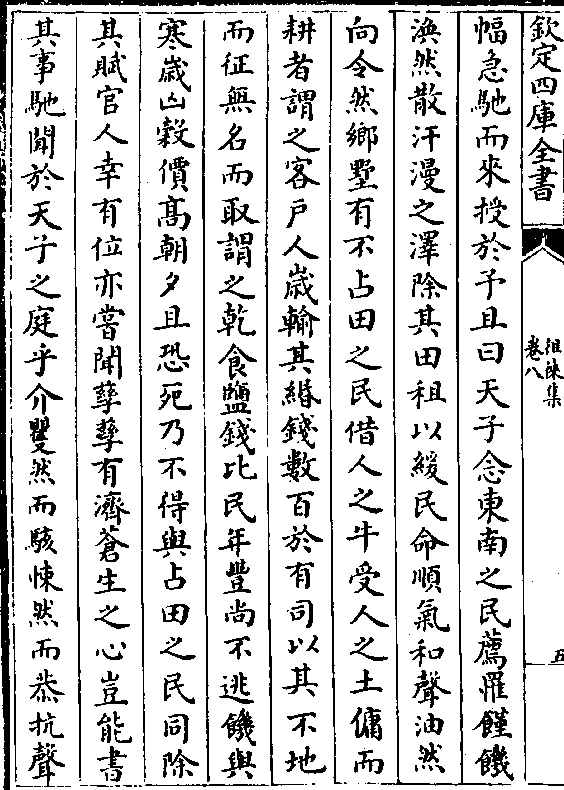 欽定四庫全書
徂徠集
卷八
五
幅急馳而來授於予且曰天子念東南之民薦罹饉饑
渙然散汗漫之澤除其田租以緩民命順氣和聲油然
向令然鄉墅有不占田之民借人之牛受人之土傭而
耕者謂之客戸人嵗輸其緡錢數百於有司以其不地
而征無名而取謂之乾食鹽錢比民年豐尚不逃饑與
寒嵗凶穀價髙朝夕且恐死乃不得與占田之民同除
其賦官人幸有位亦嘗聞孽孽有濟蒼生之心豈能書
其事馳聞於天子之庭乎介矍然而駭悚然而恭抗聲